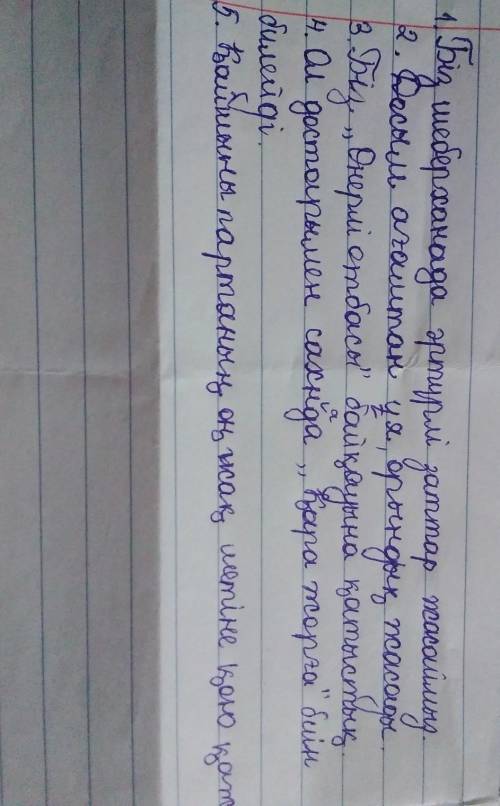 1. Біз шеберханада әртүрлі заттар жасаймыз.
2. Досым ағаштан ұя, орындық жасады.
3. Біз „Өнерлі отбасы" байқауына қатыстық.
4. Ол достарымен сахнада „Қара жорға" биін
билейді.
5. Қайшыны партаның оң жақ шетіне қою қат